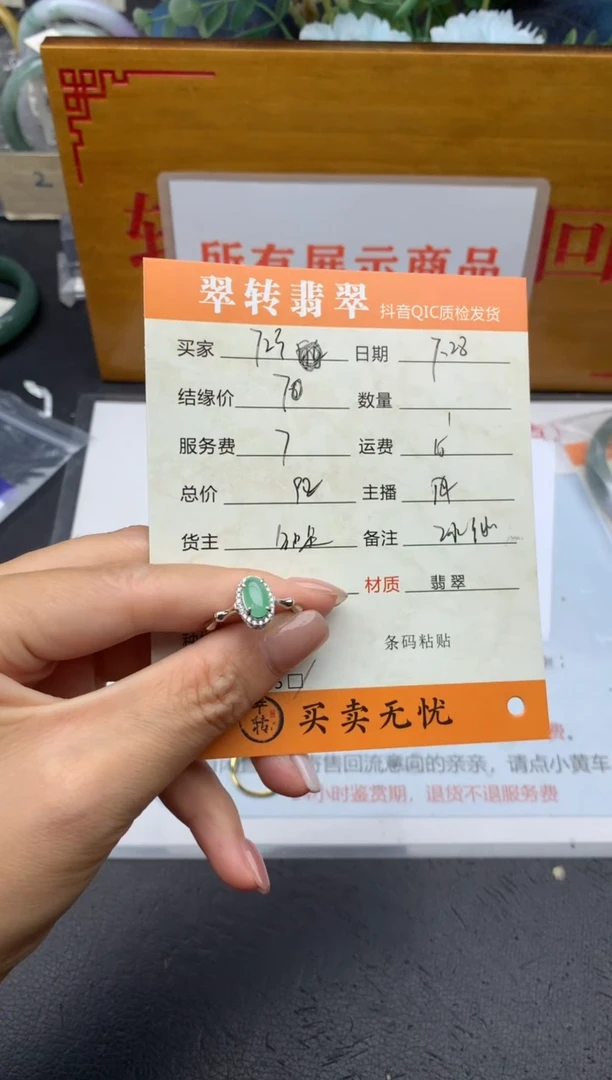 2
转
回
所有展示商品
翠转翡翠 抖音QIC质检发货
买家 日期 7.28
结缘价 70 数量 1
服务费 7 运费 15
总价 92 主播
货主 备注
材质 翡翠
条码粘贴
买卖无忧
费。
售回流意向的亲亲，请点小黄车
小时鉴赏期，退货不退服务费